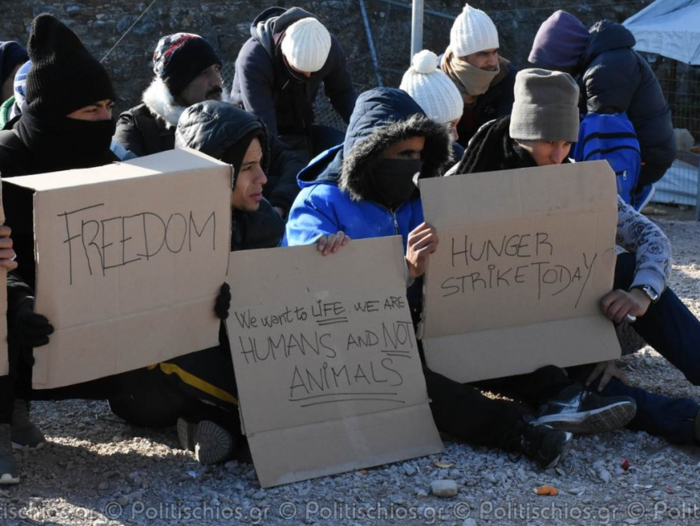 FREEDOM
We want to LIFE WE ARE
HUMANS AND NOT
ANIMALS
HUNGER
STRIKE TODAY
© Politischios.gr © Politischios.gr © Politischios.gr © Politischios.gr ©